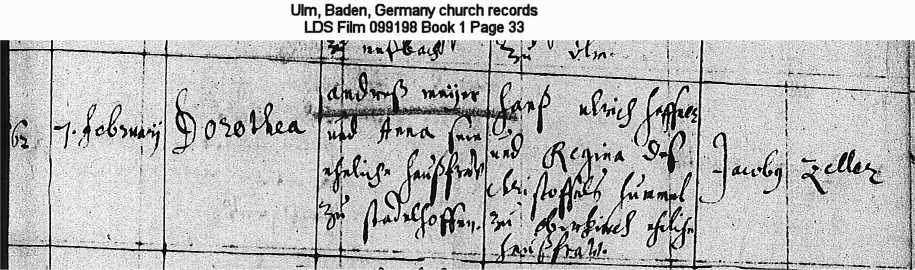 Ulm, Baden, Germany church records
LDS Film 099198 Book 1 Page 33
zu zu Ulm.
7. February
Dorothea
andreß meijer
und Anna sein
eheliche haußfraw
zu stadelhoffen.
hanß ulrich
und Regina des
Christoffels hummel
zu oberkirch eheliche
haußfraw.
Jacobg zeller